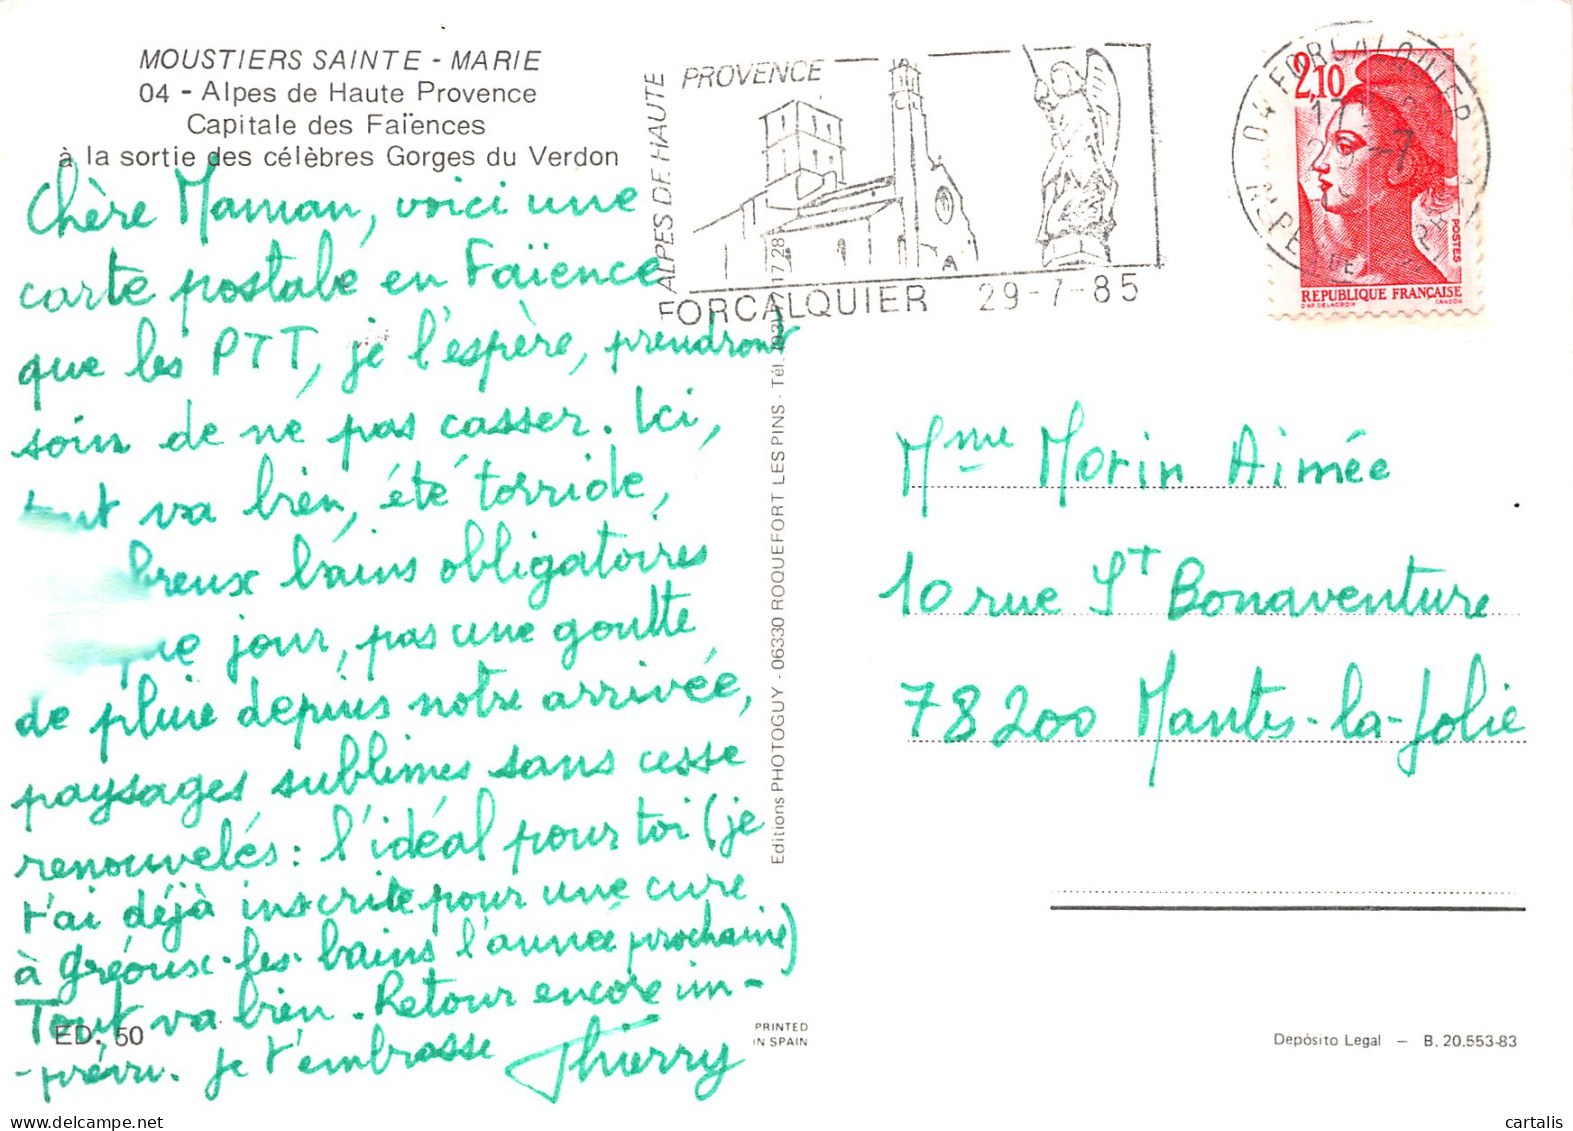 MOUSTIERS SAINTE - MARIE
04 - Alpes de Haute Provence
Capitale des Faïences
à la sortie des célèbres Gorges du Verdon
Chère Maman, voici une
carte postale en Faïence
que les PTT, je l'espère, prendront
soin de ne pas casser. Ici,
tout va bien, été torride,
breux bains obligatoires
que jour, pas une goutte
de pluie depuis notre arrivée,
paysages sublimes sans cesse
renouvelés : l'idéal pour toi (je
t'ai déjà inscrite pour une cure
à Gréoux-les-bains l'année prochaine)
Tout va bien. Retour encore im-
-prévu. Je t'embrasse Thierry
ED. 50
ALPES DE HAUTE
PROVENCE
FORCALQUIER 29-7-85
04 FORCALQUIER
17H
-7
2,10
POSTES
REPUBLIQUE FRANÇAISE
D'AP. DELACROIX GANDON
Editions PHOTOGUY - 06330 ROQUEFORT LES PINS - Tél.
7.28
Mme Morin Aimée
10 rue St Bonaventure
78200 Mantes-la-Jolie
PRINTED
IN SPAIN
Depósito Legal – B. 20.553-83
cartalis